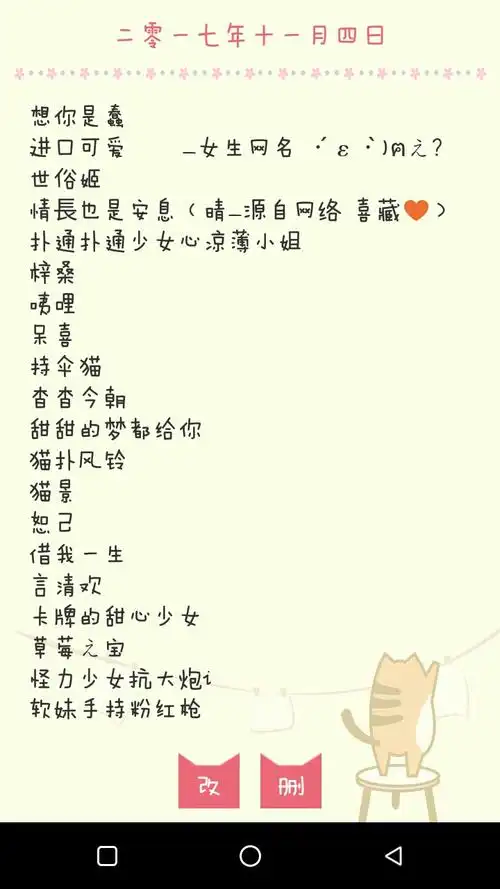 二零一七年十一月四日
想你是蠢
进口可爱 _女生网名 ˙´ε˙`)ฅえ?
世俗姬
情長也是安息（晴_源自网络 喜藏❤）
扑通扑通少女心凉薄小姐
梓桑
咦哩
呆喜
持伞猫
杳杳今朝
甜甜的梦都给你
猫扑风铃
猫景
恕己
借我一生
言清欢
卡牌的甜心少女
草莓之宝
怪力少女抗大炮i
软妹手持粉红枪
改 删